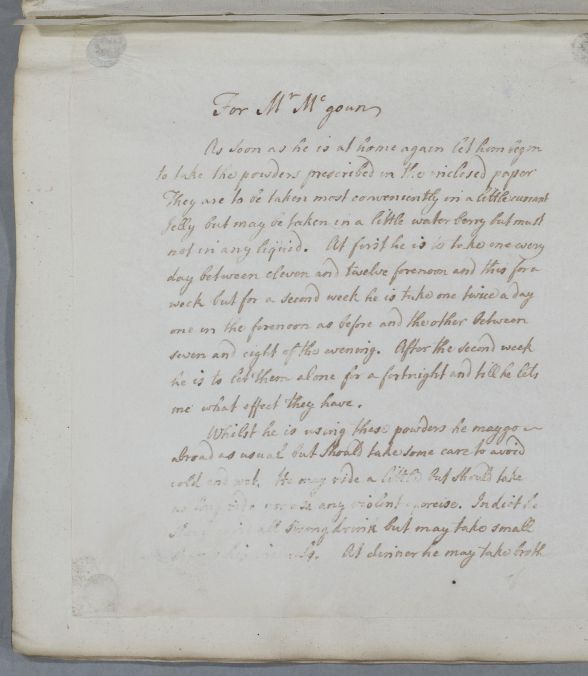 For Mr Mcgoun
As soon as he is at home again let him begin
to take the powders prescribed in the inclosed paper
They are to be taken most conveniently in a little currant
Jelly but may be taken in a little water berry but must
not in any liquid. At first he is to take one every
day between eleven and twelve forenoon and this for a
week but for a second week he is take one twice a day
one in the forenoon as before and the other between
seven and eight of the evening. After the second week
he is to let them alone for a fortnight and till he lets
me what effect they have.
Whilst he is using these powders he may go
abroad as usual but should take some care to avoid
cold and wet. He may ride a little but should take
any violent exercise. In diet he
all strong drink but may take small
At dinner he may take broth